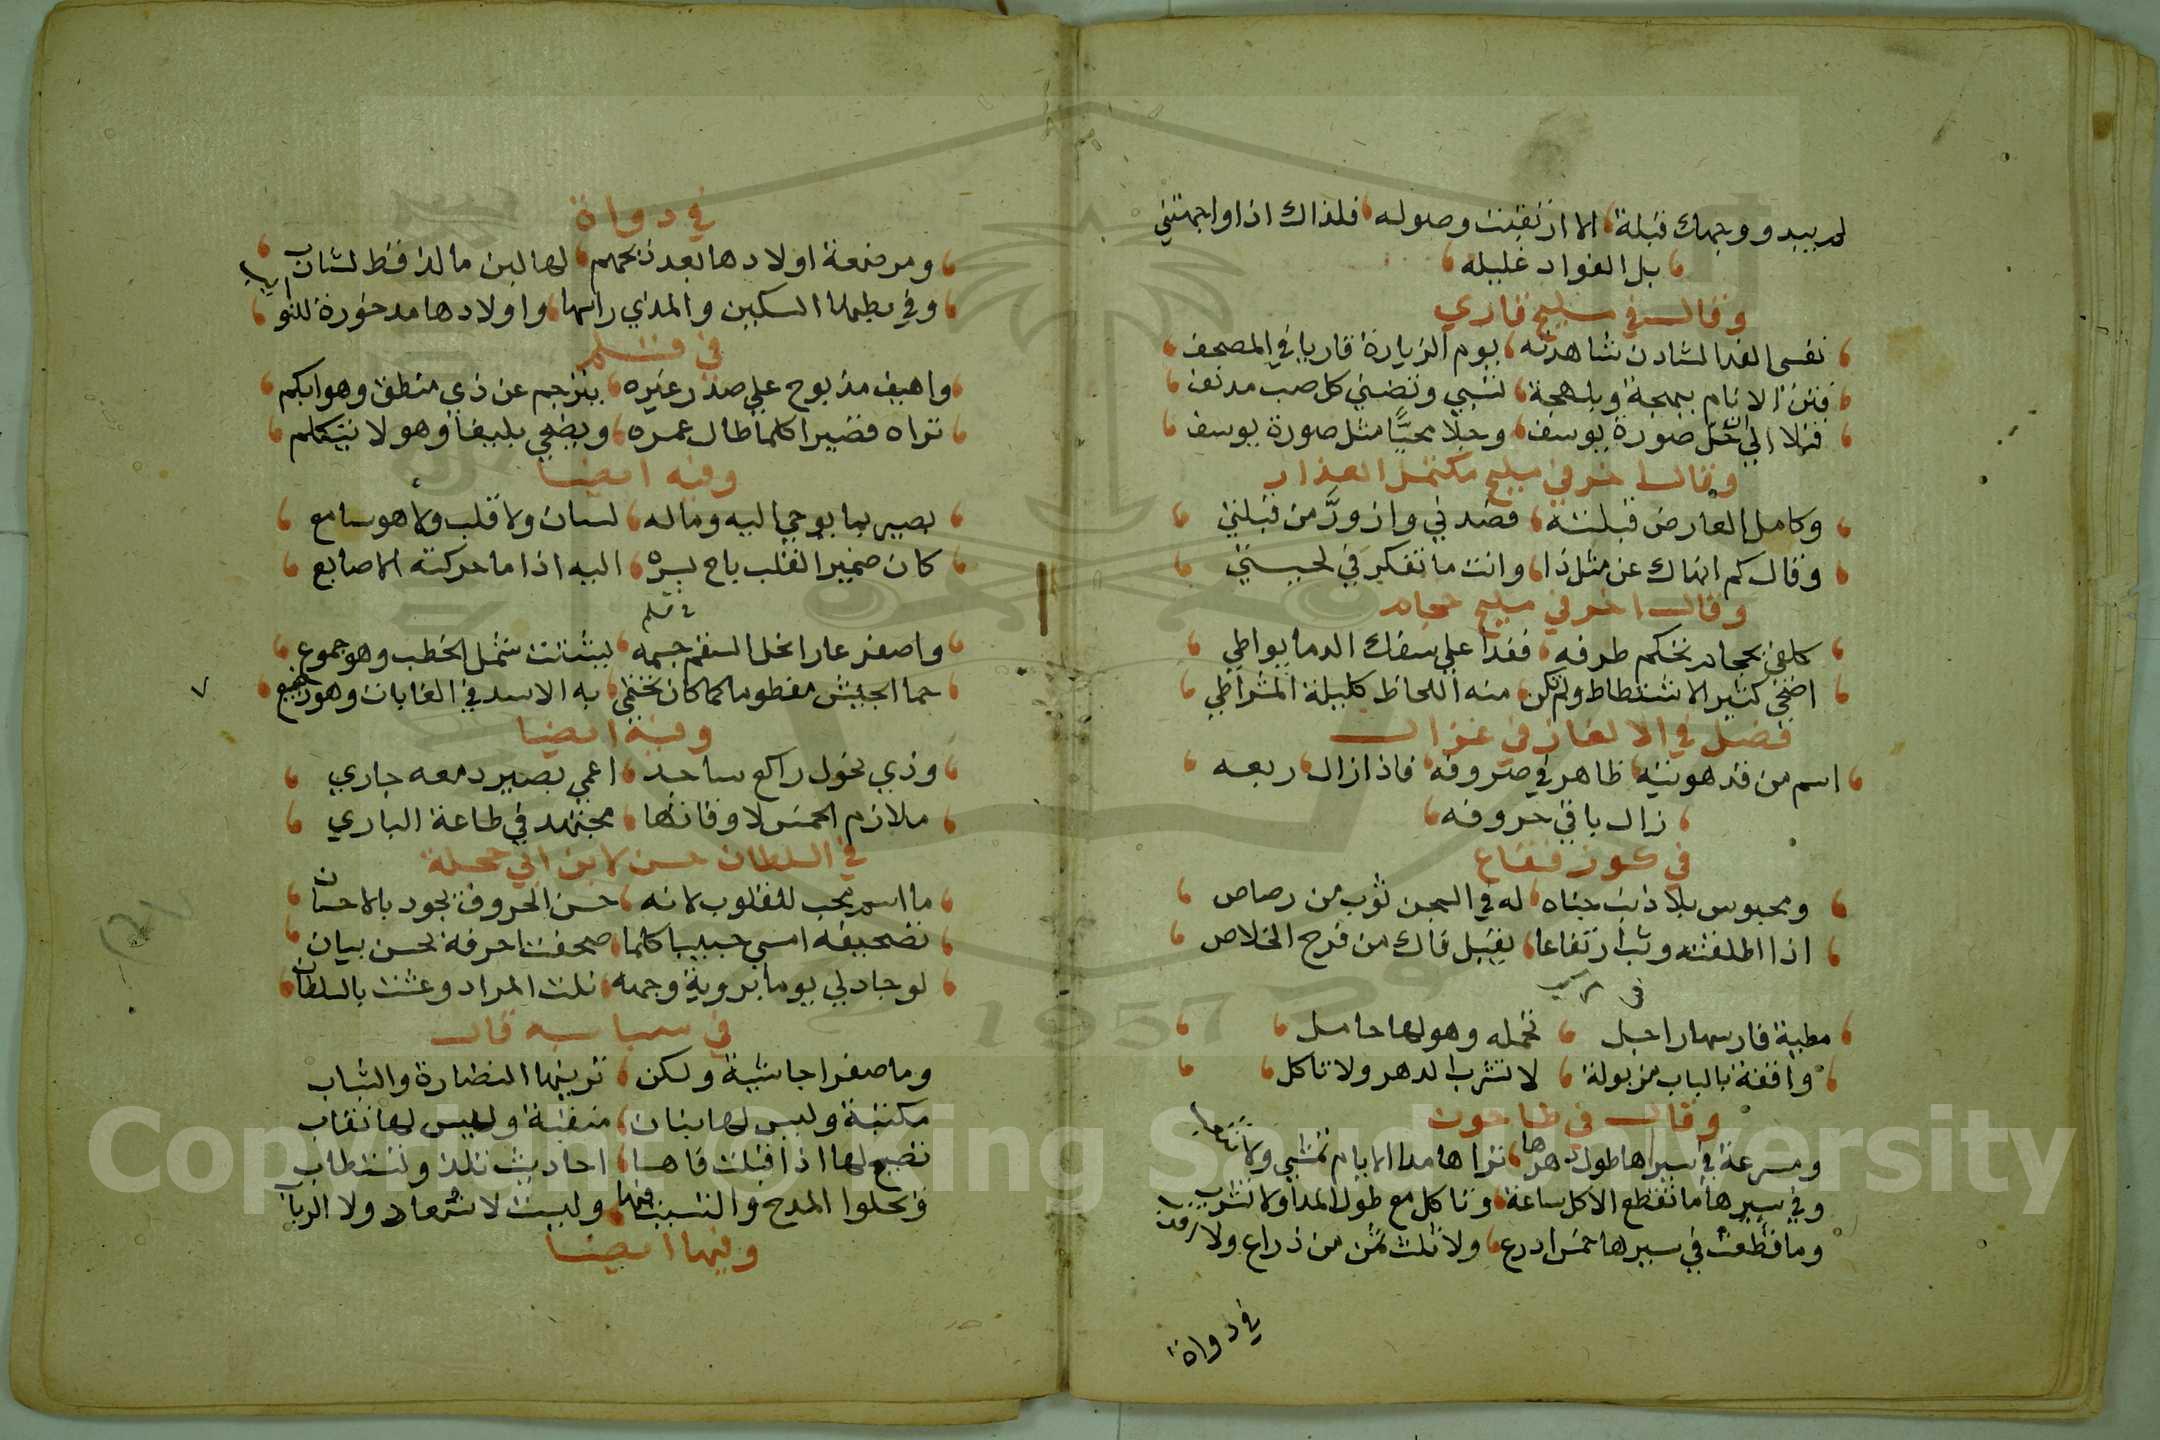 لم يبدو وجهك قبلة الا ازتقبت وصوله فلذاك اذا واجهتني
بل الفواد غليله
وقال في مليح قاري
نفسي الفدا لشادن شاهدته يوم الزيارة قاريا في المصحف
فتن الانام ببهجة وبلهجة تسبي وتضني كل صب مدنف
فتلا الي صورة يوسف وجلا محيًّا مثل صورة يوسف
وقال اخر في مليح مكتمل العذار
وكامل العارض قبلته فصدني وازورَّ من قبلتي
وقال كم انهاك عن مثل ذا وانت ما تفكر في لحيتي
وقال اخر في مليح حجام
كلفي بحجام تحكم طرفه فغدا على سفك الدما يواطي
اضحى كثير الاشتطاط ولم تكن منه اللحاظ كليلة المشراطي
فصل في الالغاز في غزال
اسم من قد هويته ظاهر في صروفه فاذا زال ربعه
زال باقي حروفه
في كوز فقاع
ومحبوس بلا ذنب جناه له في السجن ثوب من رصاص
اذا اطلقته وثب ارتفاعا يقبل فاك من فرح الخلاص
في
مطية فارسها راجل تحمله وهو لها حامل
واقفة بالباب مزبولة لا تشرب الدهر ولا تاكل
وقال في طاحون
ومسرعة في سيرها طول دهرها تراها مدا الايام تمشي ولا تتعب
وفي سيرها ما تقطع الاكل ساعة وتاكل مع طول المدا ولا تشرب
وما قطعت في سيرها خمس ادرع ولا ثلث ثمن من ذراع ولا اقرب
في دواة
في دواة
ومرضعة اولادها بعد ذبحهم لها لبن ما لذ قط لشارب
وفي بطنها السكين والمدي راسها واولادها مدخورة للنوايب
في قلم
واهيف مذبوح على صدر غيره يترجم عن ذي منطق وهو ابكم
تراه قصيرا كلما طال عمره ويضحي بليغا وهو لا يتكلم
وفيه ايضا
بصير بما يوحي اليه وماله لسان ولا قلب ولا هو سامع
كان ضمير القلب باح بسره اليه اذا ما حركته الاصابع
في قلم
واصفر عار انحل السقم جسمه يشتت شمل الخطب وهو جموع
حما الجيش مفطوما كما كان تحتمي به الاسد في الغابات وهو رضيع
وفيه ايضا
وذي نحول راكع ساجد اعمي بصير دمعه جاري
ملازم الخمس لاوقاتها مجتهد في طاعة الباري
في السلطان حسن لابن ابي حجلة
ما اسم يحب للقلوب لانه حسن الحروف يجود بالاحسان
تصحيفه امسي حبيبا كلما صحفت احرفه بحسن بيان
لو جاد لي يوما بروية وجهه نلت المراد وعشت بالسلطان
في سبابه قال
وما صفرا جانية ولكن تزينها النضارة والشباب
مكتبة وليس لها بنان منقبة وليس لها نقاب
تصيح لها اذا قبلت فاها احاديث تلذ وتستطاب
ويحلوا المدح والتشبيب فيها وليست لا سعاد ولا الرباب
وفيها ايضا